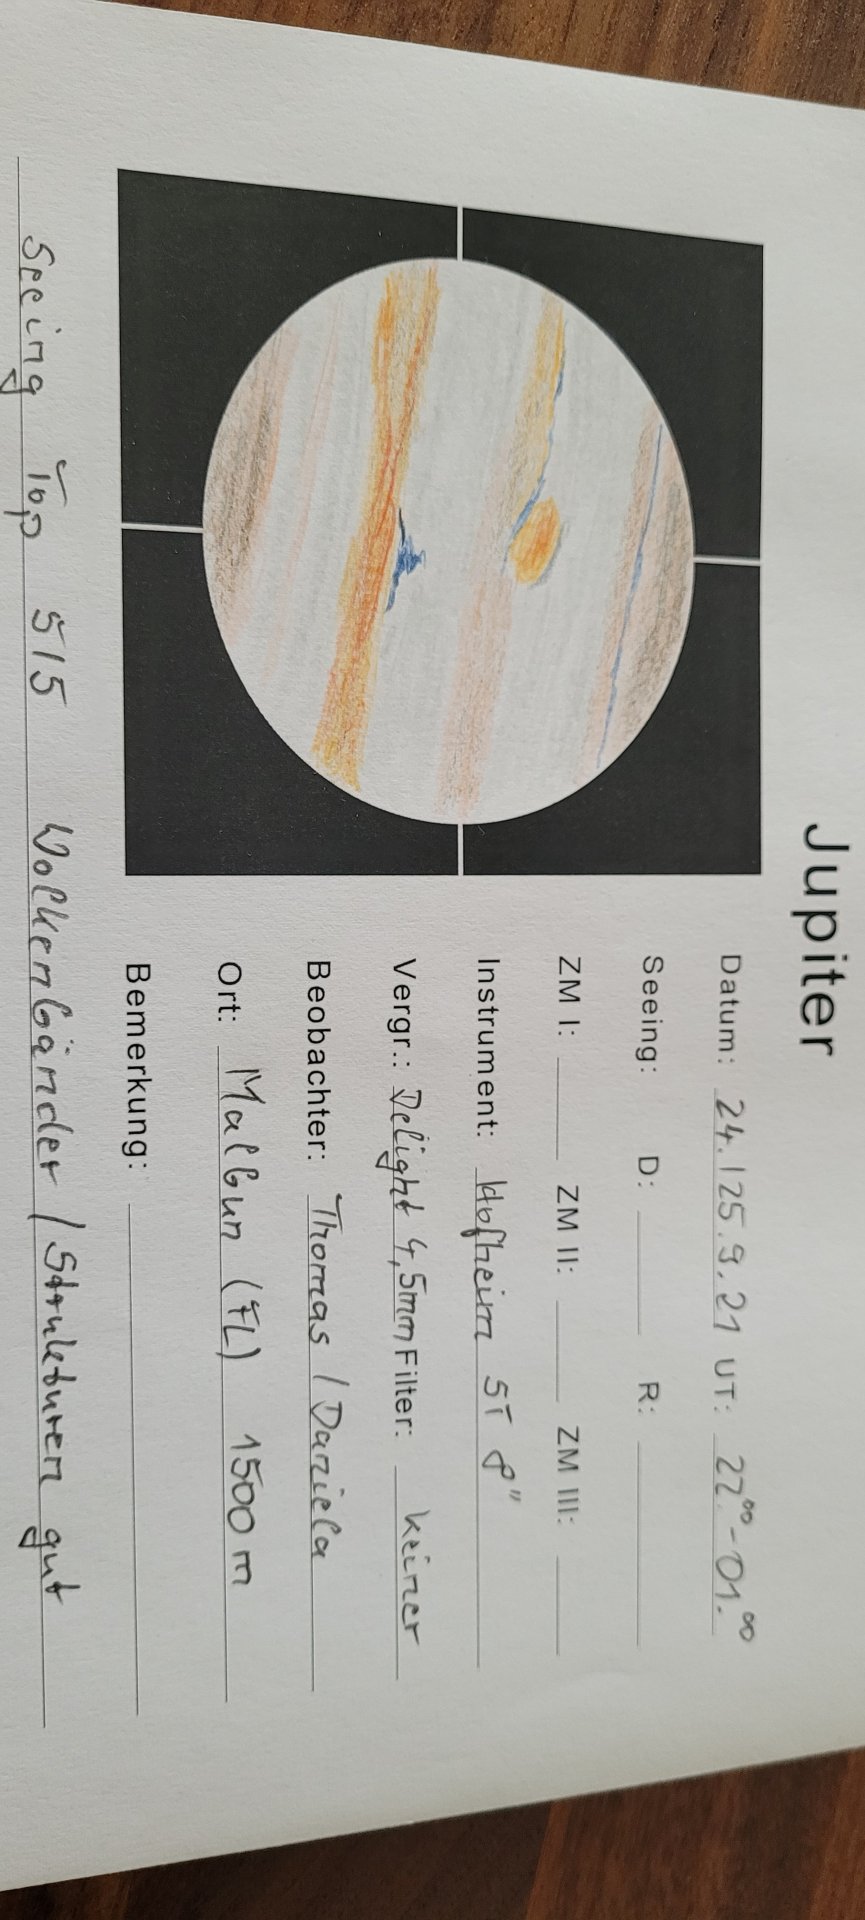 Jupiter
Datum: 24./25.9.21 UT: 22.⁰⁰-01.⁰⁰
Seeing: D: R:
ZM I: ZM II: ZM III:
Instrument: Hofheim ST 8"
Vergr.: Delight 4,5mm Filter: keiner
Beobachter: Thomas / Daniela
Ort: Malbun (FL) 1500 m
Bemerkung:
Seeing Top 5/5 Wolkenbänder / Strukturen gut